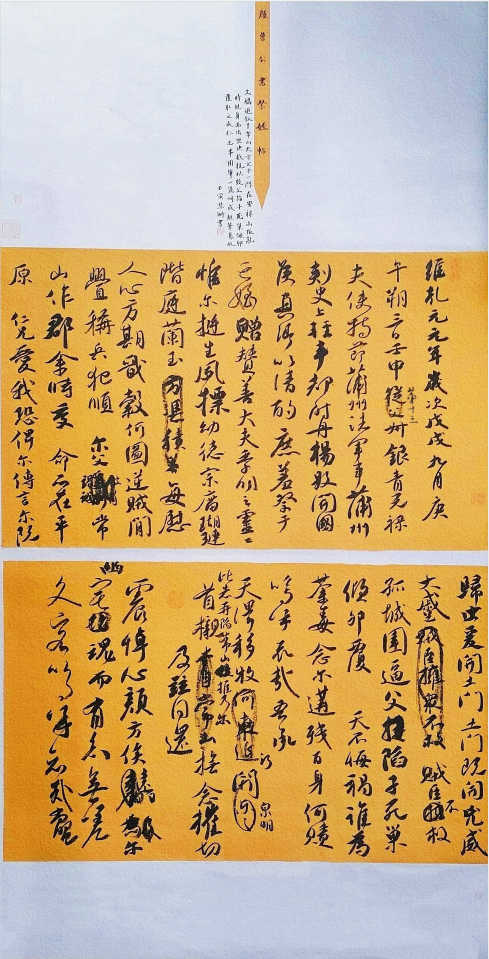 顏魯公書祭姪帖
時挺身而出堅決抵抗致父陷子死巢傾卵
維乾元元年歲次戊戌九月庚
午朔三日壬申第十三從父銀青光祿
夫使持節蒲州諸軍事蒲州
刺史上輕車都尉丹楊縣開國
侯真卿以清酌庶羞祭于
亡姪贈贊善大夫季明之靈
惟尔挺生夙標幼德宗廟瑚璉
階庭蘭玉方憑積善每慰
人心方期戩穀何圖逆賊間
釁稱兵犯順尔父竭誠常
山作郡余時受命亦在平
原仁兄愛我恐俾尔傳言尔既
歸止爰開土門土門既開凶威
大蹙賊臣擁眾不救賊臣不救
孤城圍逼父陷子死巢
傾卵覆天不悔禍誰為
荼毒念尔遘殘百身何贖
嗚乎哀哉吾承
天澤移牧河東近河關泉明
比者再陷常山攜尔
首櫬常山撫念摧切
及茲同還
震悼心顏方俟遠日卜尔
幽宅魂而有知無嗟
久客嗚呼哀哉尚饗